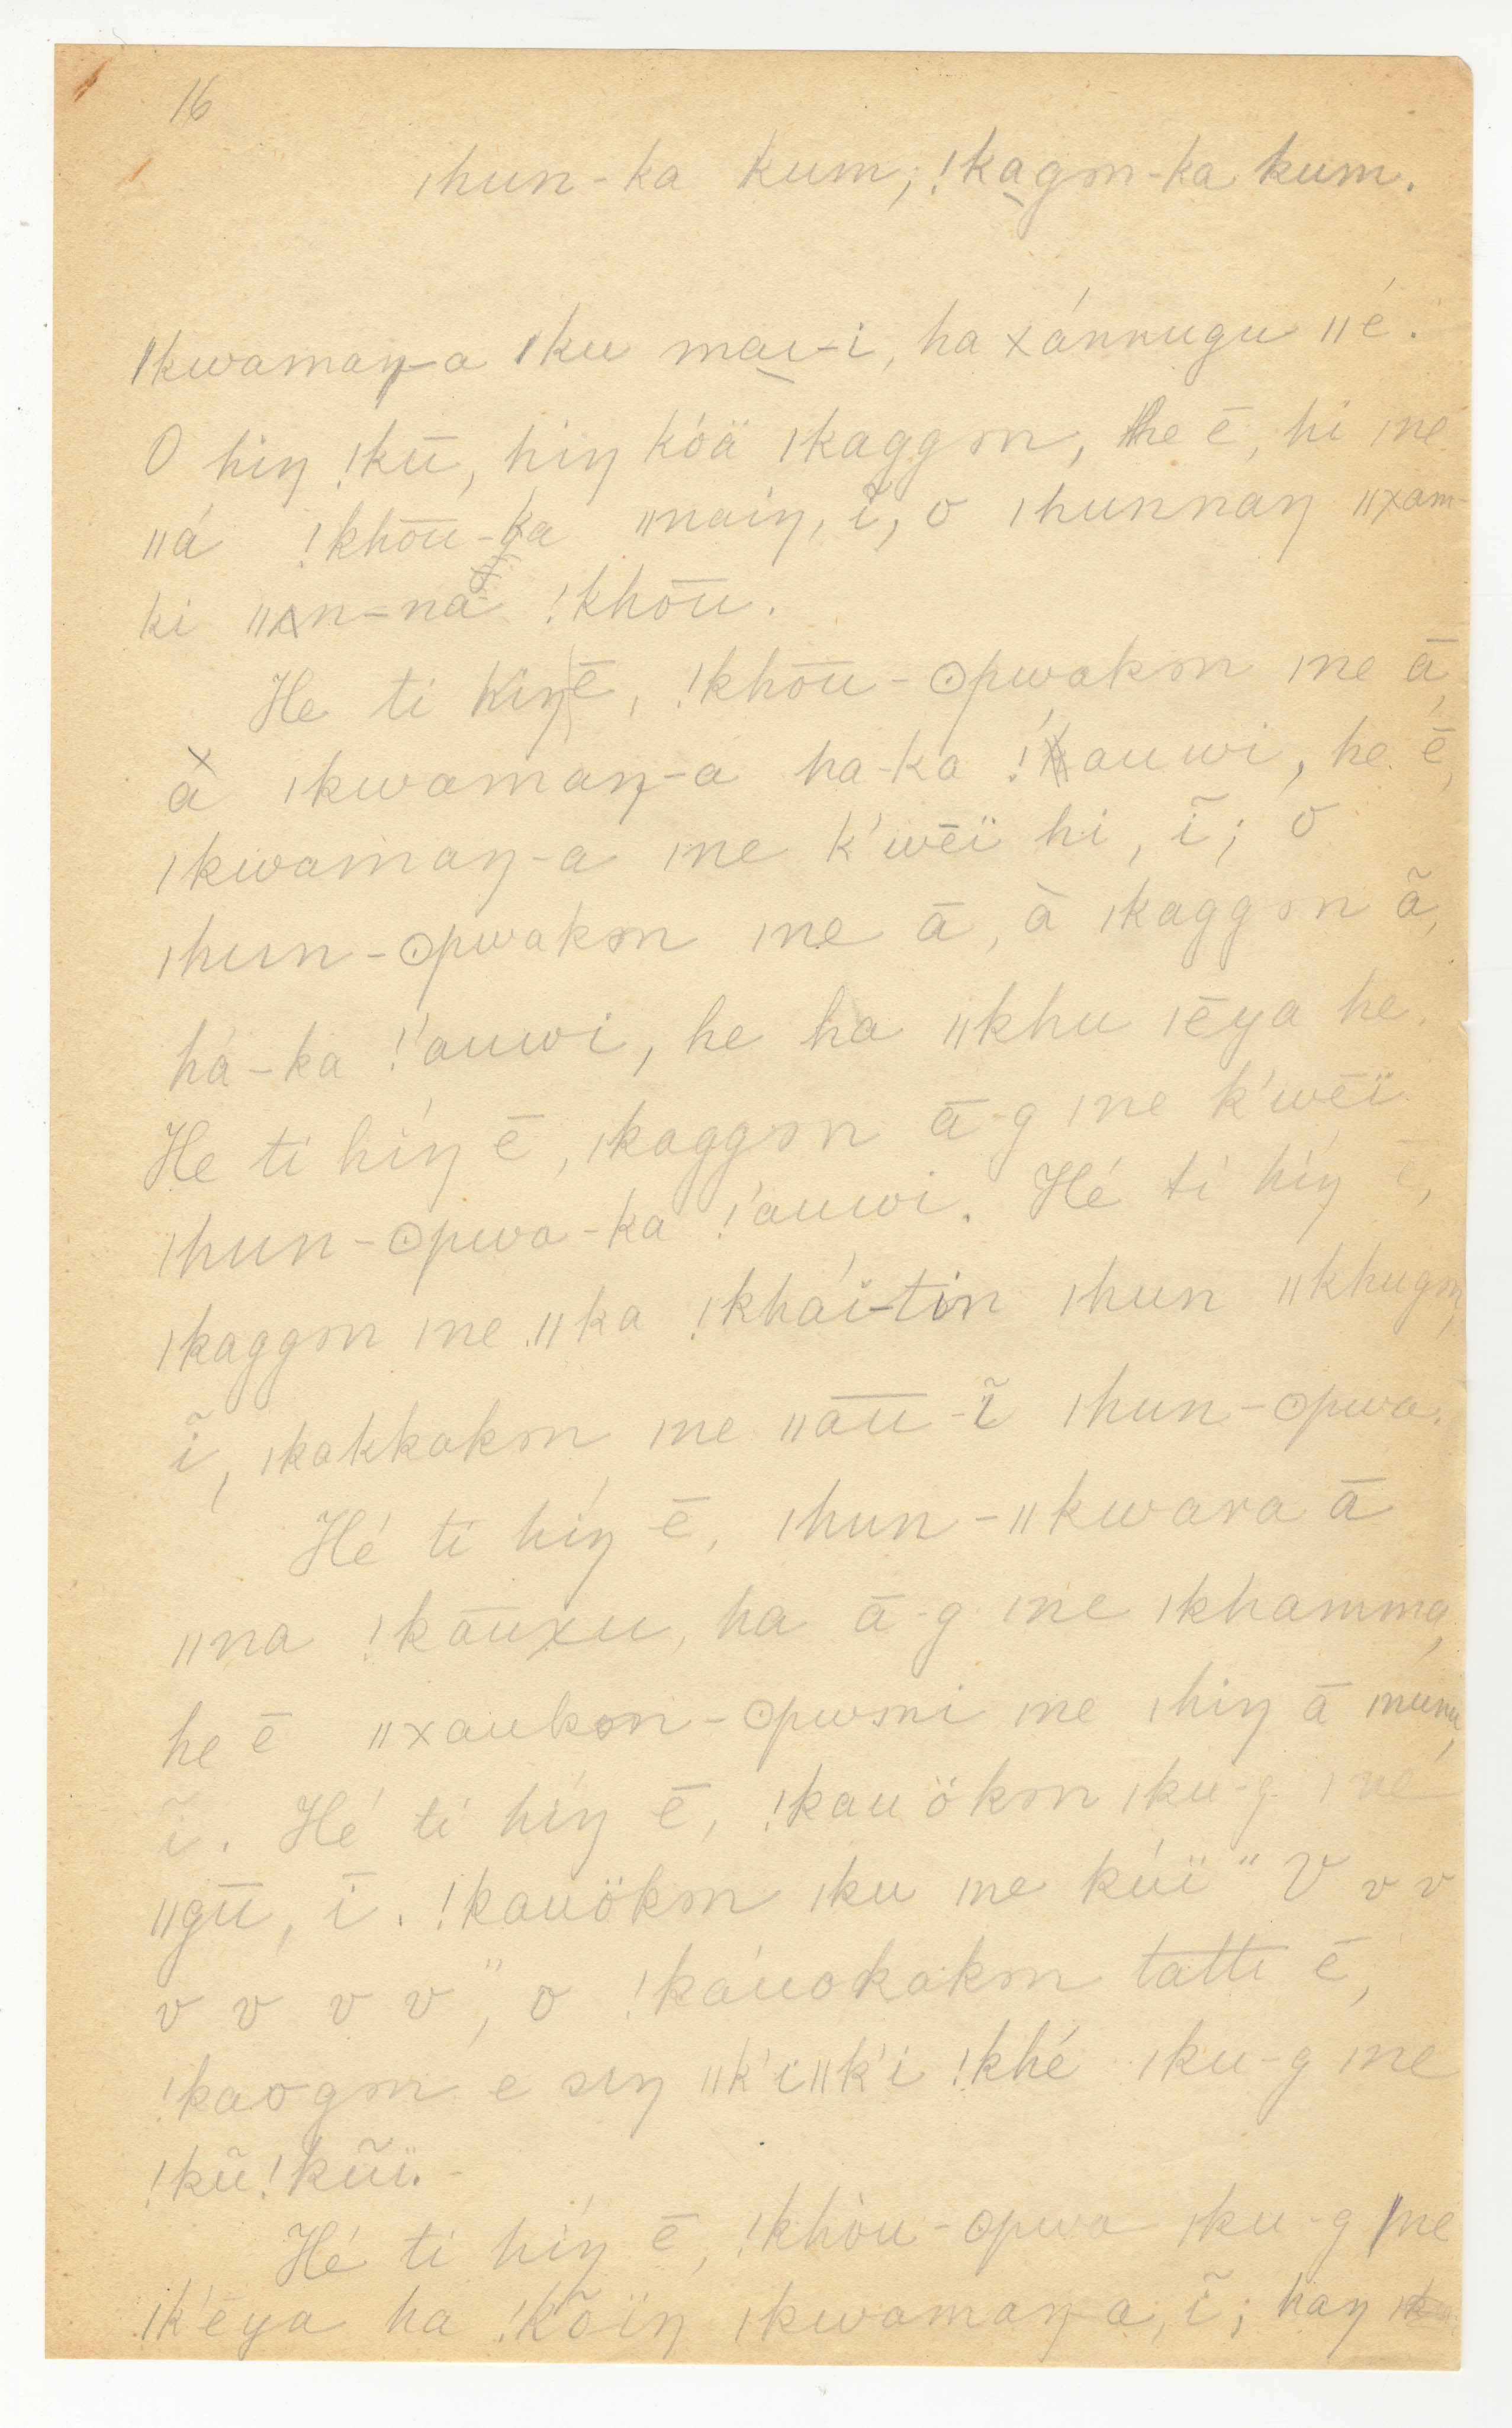 16
ıhun-ka kum; !kagən-ka kum.
ıkwamaŋ-a ıku maı-i, ha xánnugu ııé.
O hiŋ !kū, hiŋ kóä ıkaggən, he ē, hi ıne
ııá !khōū-ka ıınaiŋ, ĩ, o ıhunnaŋ ııxam-
ki ııən-na !khōū.
He ti hiŋ ē, !khōū-ʘpwakən ıne ā,
à ıkwamaŋ-a ha-ka !'auwi, he ē,
ıkwamaŋ-a ıne k'wēï hi, ĩ; o
ıhun-ʘpwakən ıne ā, à ıkaggən ã,
há-ka !'auwi, he ha ııkhu ıēya he.
He ti híŋ ē, ıkaggən ā-g ıne k'wēï
ıhun-ʘpwa-ka !'auwi. Hé ti híŋ ē,
ıkaggən ıne ııka !khái-tən ıhun ııkhugən,
ĩ, ıkakkakən ıne ııāū-ĩ ıhun-ʘpwa.
Hé ti híŋ ē, ıhun-ııkwara ā
ıına !kāuxu, ha ā-g ıne ıkhamma,
he ē ııxaukən-ʘpwəni ıne ıhiŋ ā ınunu,
ĩ. Hé ti híŋ ē, !kauökən ıku-g ıné
ııgū, ī. !kauökən ıku ıne kúï "V v v
v v v v", o !káuokakən tatti ē,
!kaogən e səŋ ıık'iıık'i !khé ıku-g ıne
!kũ!kũï.
Hé ti híŋ ē, !khòu-ʘpwa ıku-g ıne
ık'ēya ha !kõïŋ ıkwamaŋ-a, ĩ; haŋ